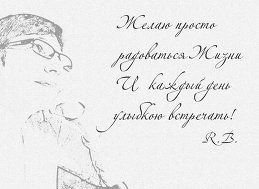 Желаю просто
радоваться Жизни
И каждый день
улыбкою встречать!
R.B.